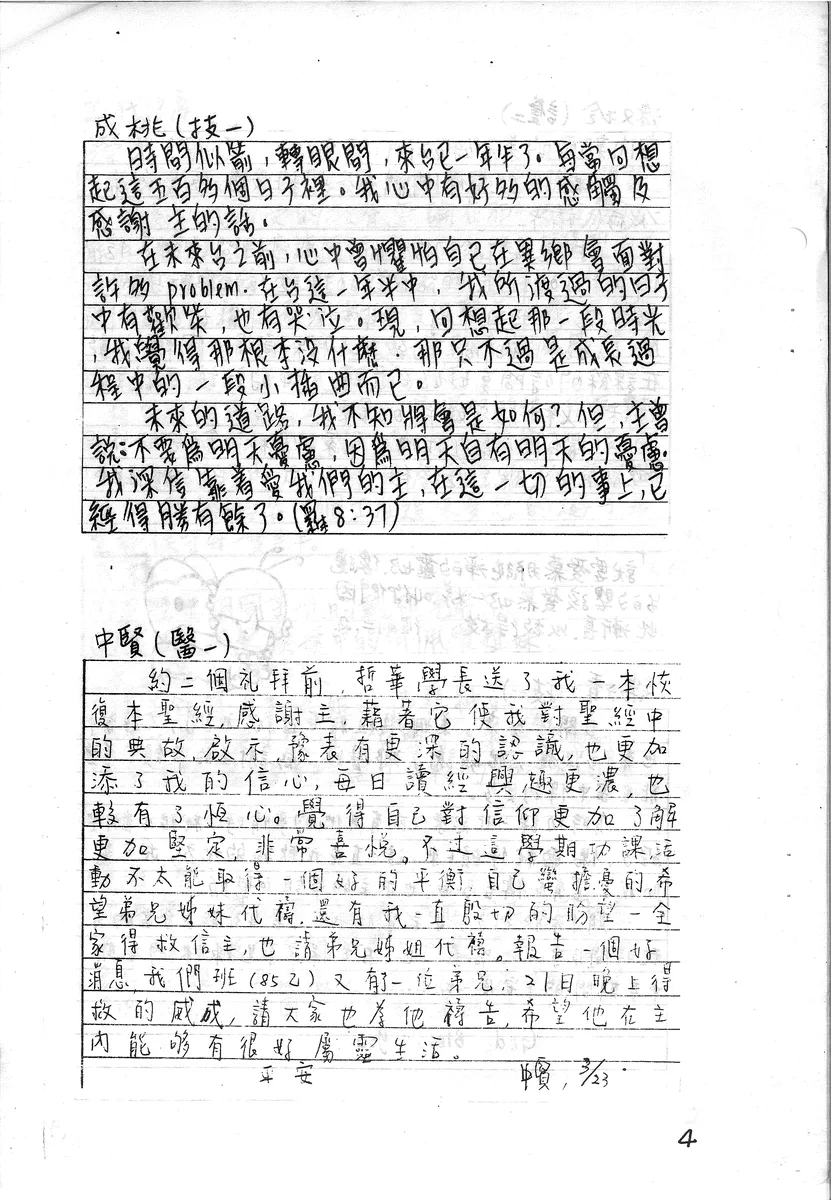 成桃(技一)
時間似箭,轉眼間,來台已一年半了。每當回想
起這五百多個日子裡。我心中有好多的感觸及
感謝 主的話。
在未來台之前,心中曾懼怕自己在異鄉會面對
許多 problem. 在台這一年半中,我所渡過的日子
中有歡笑,也有哭泣。現,回想起那一段時光
,我覺得那根本沒什麼.那只不過是成長過
程中的一段小插曲而已。
未來的道路,我不知將會是如何?但,主曾
說:不要為明天憂慮,因為明天自有明天的憂慮.
我深信靠著愛我們的主,在這一切的事上,已
經得勝有餘了。(羅 8:37)
中賢(醫一)
約二個礼拜前,哲華學長送了我一本恢
復本聖經,感謝主,藉著它使我對聖經中
的典故,啟示,豫表有更深的認識,也更加
添了我的信心,每日讀經興趣更濃,也
較有了恆心。覺得自己對信仰更加了解
更加堅定,非常喜悅。不过這學期功課,活
動不太能取得一個好的平衡,自己蠻擔憂的,希
望弟兄姊妹代禱,還有我一直殷切的盼望一全
家得救信主,也請弟兄姊姐代禱。報告一個好
消息,我們班(85乙)又有了一位弟兄:21日晚上得
救的威成,請大家也為他禱告,希望他在主
內能够有很好屬靈生活。
平安 中賢, 3/23.
4